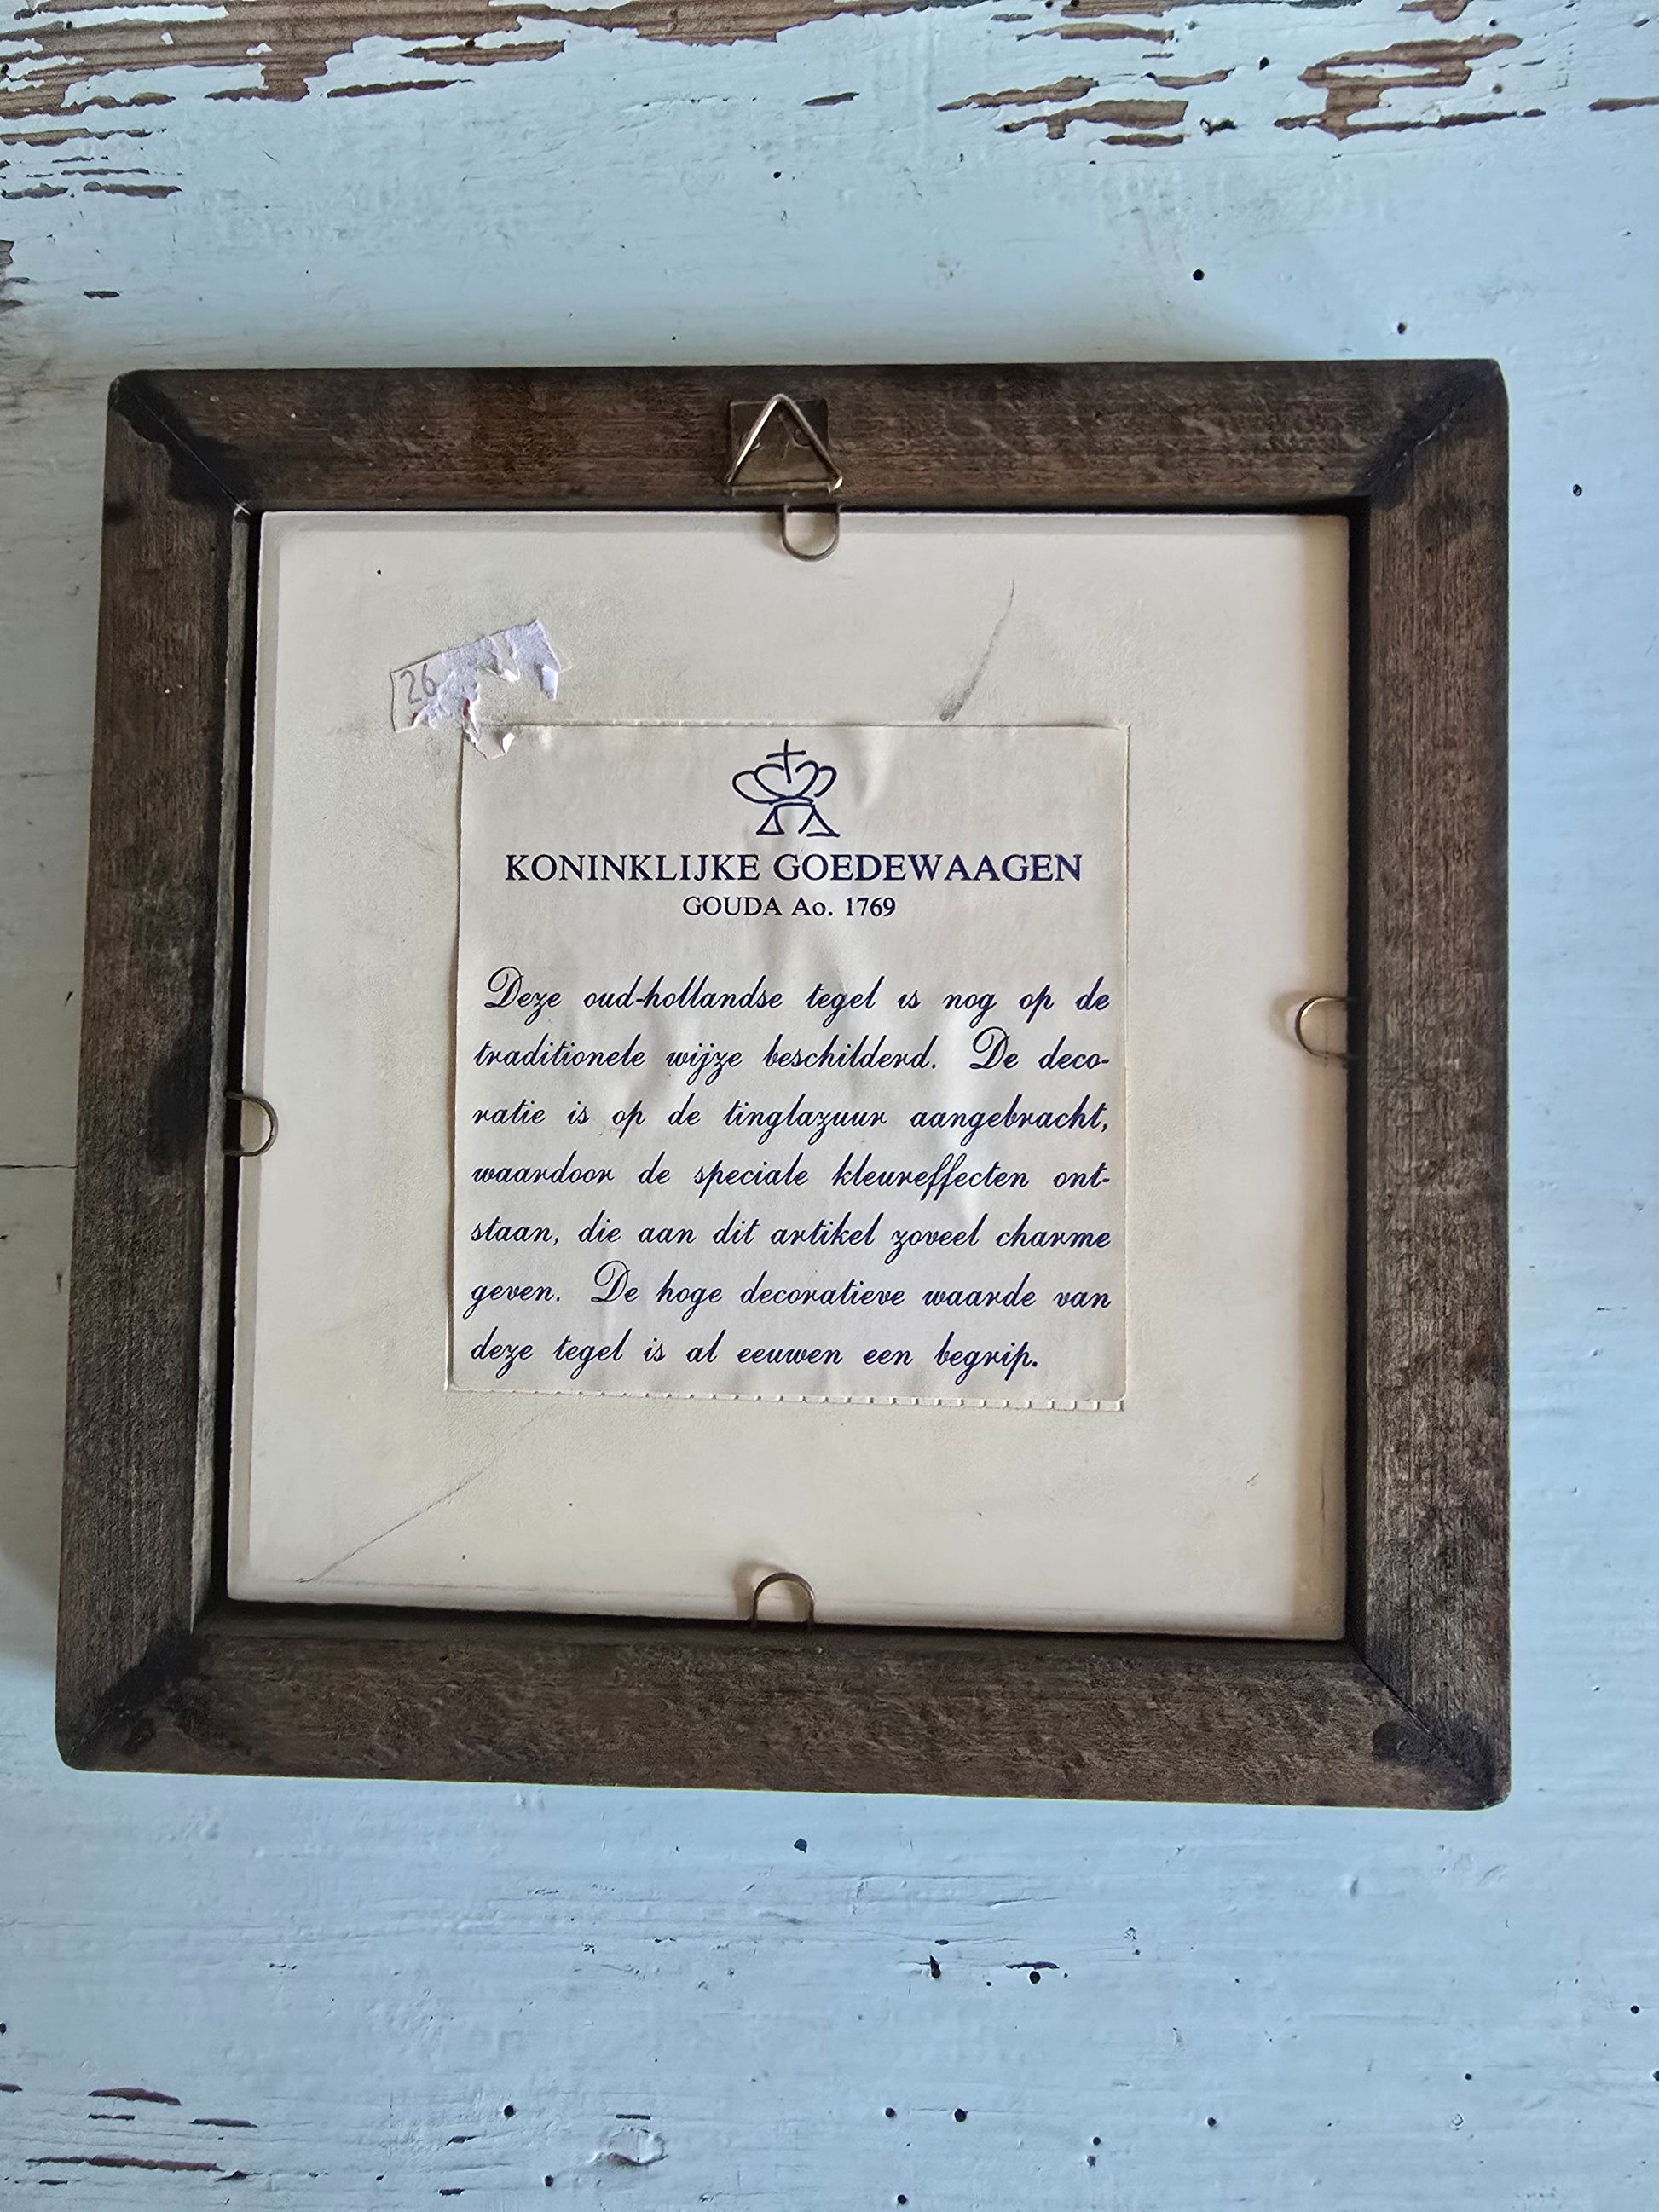 26
KONINKLIJKE GOEDEWAAGEN
GOUDA Ao. 1769
Deze oud-hollandse tegel is nog op de
traditionele wijze beschilderd. De deco-
ratie is op de tinglazuur aangebracht,
waardoor de speciale kleureffecten ont-
staan, die aan dit artikel zoveel charme
geven. De hoge decoratieve waarde van
deze tegel is al eeuwen een begrip.